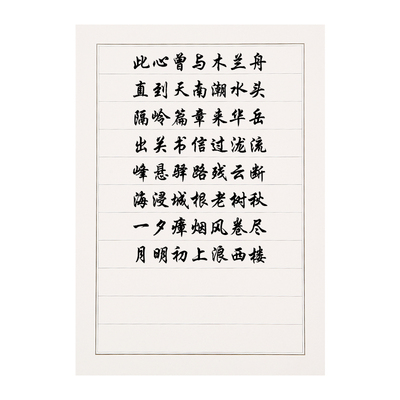 此心曾与木兰舟
直到天南潮水头
隔岭篇章来华岳
出关书信过泷流
峰悬驿路残云断
海浸城根老树秋
一夕瘴烟风卷尽
月明初上浪西楼